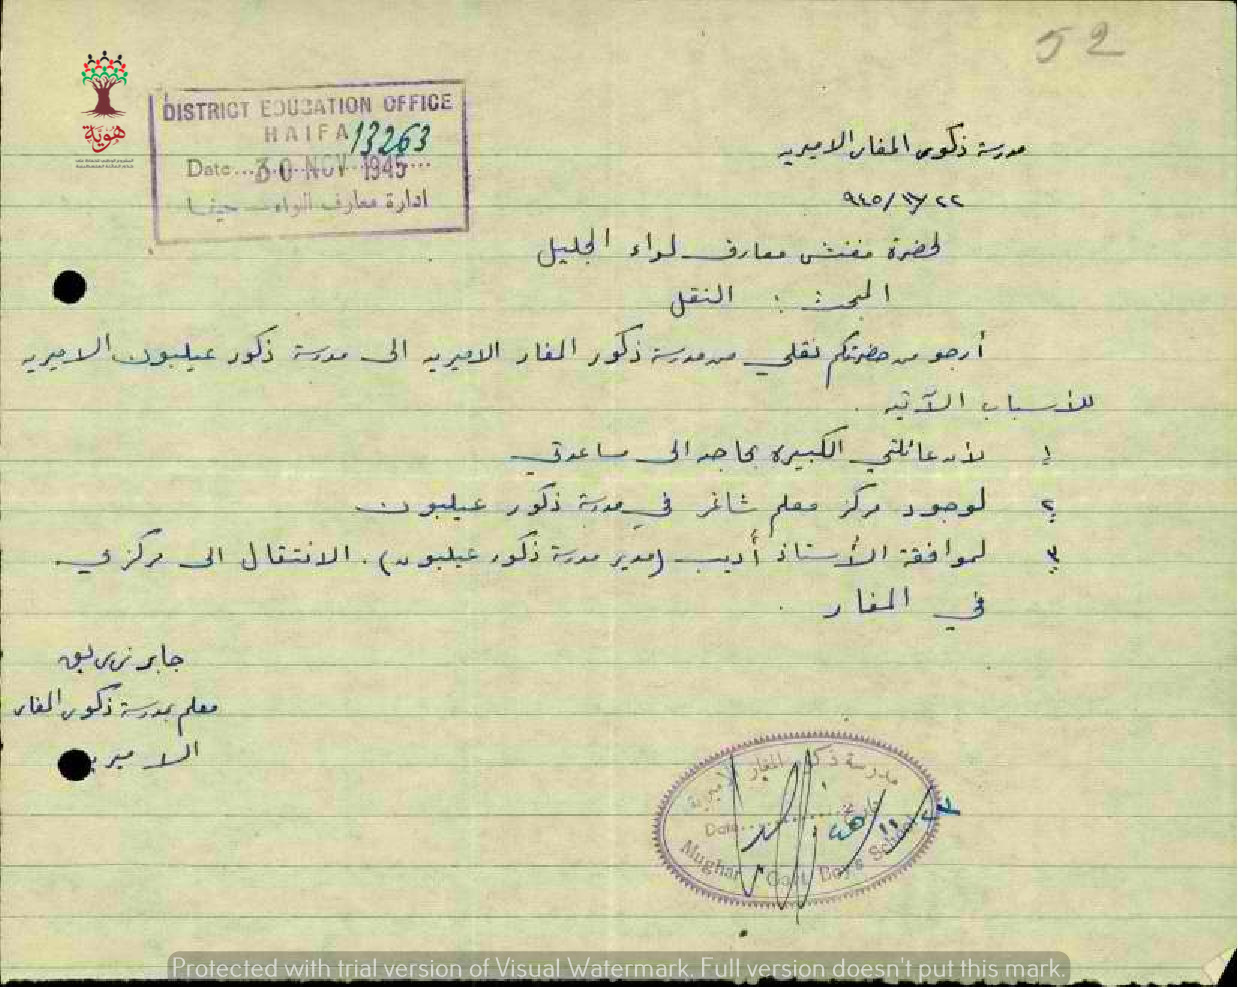 52
هوية
DISTRICT EDUCATION OFFICE
HAIFA 13263
Date... 30 NOV 1945...
ادارة معارف لواء حيفا
مدرسة ذكور المغار الاميرية
٢٢/١١/٩٤٥
لحضرة مفتش معارف لواء الجليل
المبحث : النقل
أرجو من حضرتكم نقلي من مدرسة ذكور المغار الاميرية الى مدرسة ذكور عيلبون الاميرية
للأسباب الآتية .
١ لأن عائلتي الكبيرة بحاجة الى مساعدتي
٢ لوجود مركز معلم شاغر في مدرسة ذكور عيلبون
٣ لموافقة الأستاذ أديب (مدير مدرسة ذكور عيلبون). الانتقال الى مركزي
في المغار .
جابر
معلم بمدرسة ذكور المغار
الاميرية
مدرسة ذكور المغار الاميرية
Date........... تاريخ
Mughar Govt. Boys School
Protected with trial version of Visual Watermark. Full version doesn't put this mark.